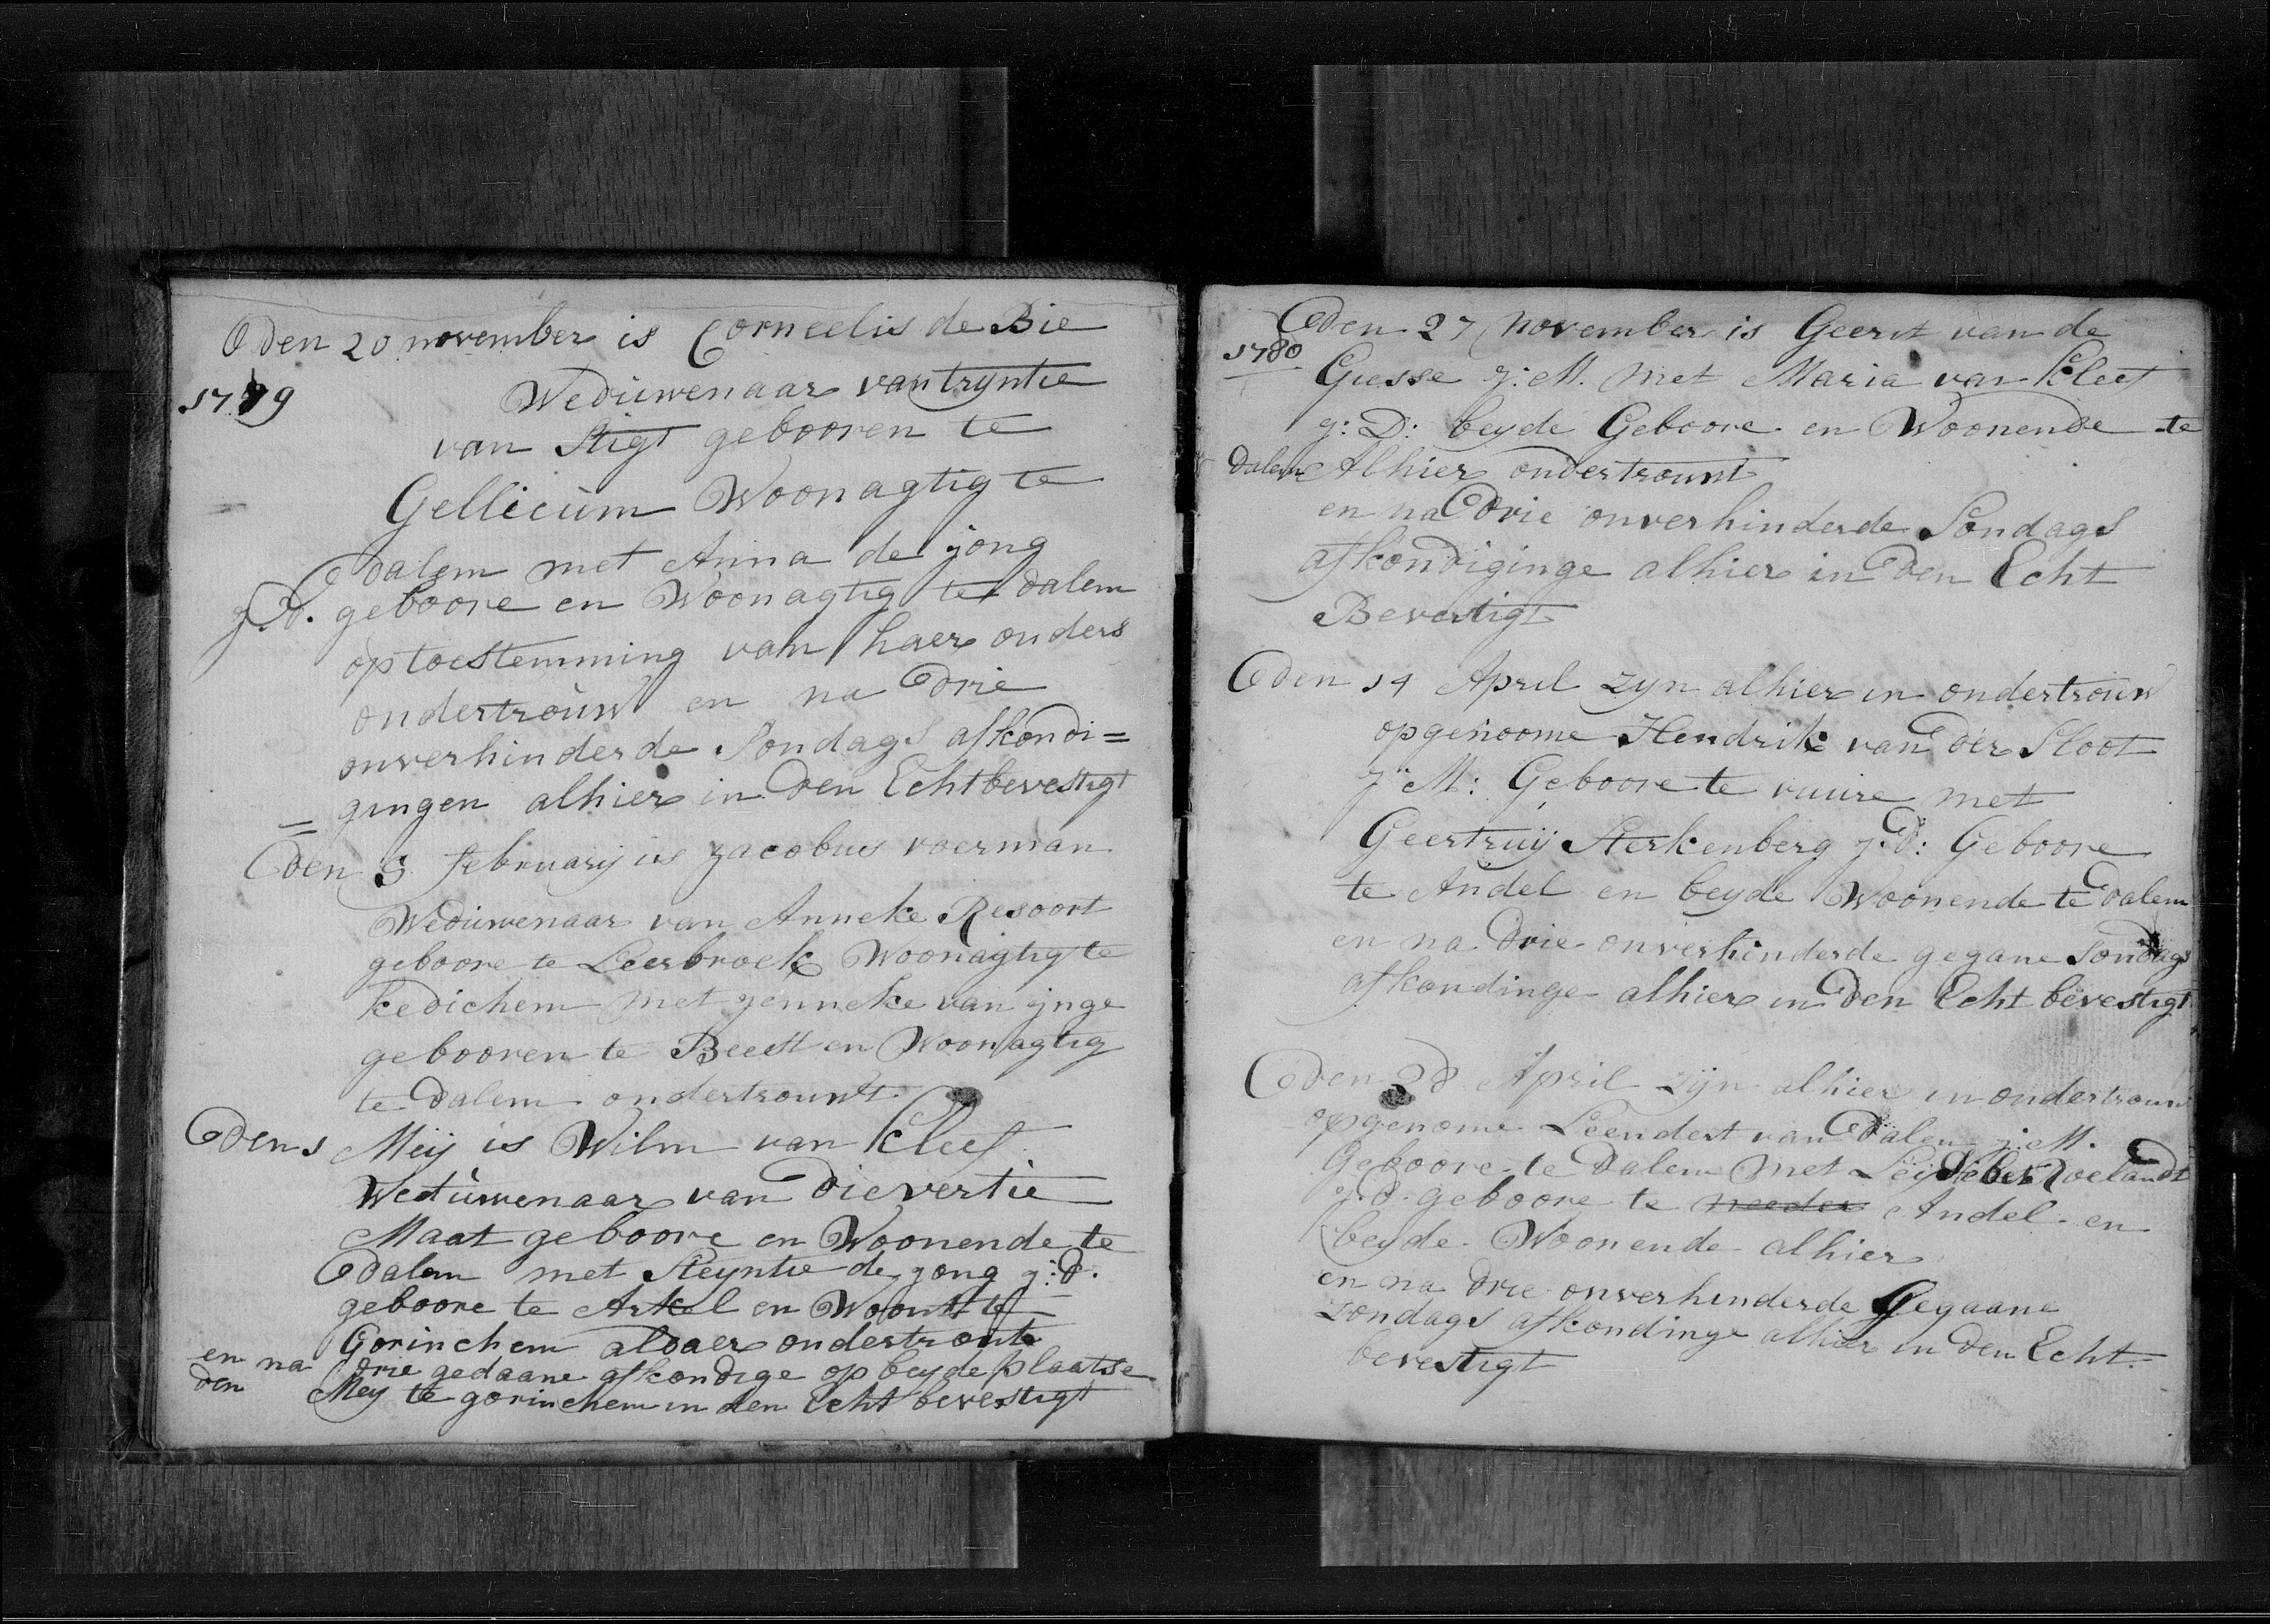 Den 20 november is Corneelis de Bie
1779
Weduwenaar van tryntie
van Stigt gebooren te
Gellicùm Woonagtig te
Dalem met Anna de jong
j.D. geboore en Woonagtig te dalem
op toestemming van haer ouders
ondertroùwt en na Drie
onverhinderde Sondags afkondi=
= gingen alhier in Den Echt bevestigt
Den 3 februarij is Jacobus voerman
Weduwenaar van Anneke Resoort
geboore te Leerbroek Woonagtig te
kedichem met jenneke van ynge
gebooren te Beest en Woonagtig
te Dalem ondertrouwt
Den 1 Meij is Wilm van Kleef
Wedùwenaar van Dievertie
Maat geboore en Woonende te
Dalem met Steyntie de jong j:D.
geboore te Arkel en Woont te
Gorinchem aldaer ondertroute
en na Drie gedaane afkondige op beyde plaatse
den Mey te gorinchem in den Echt bevestigt
Den 27 november is Geerit van de
1780
Giesse j:M. met Maria van Kleef
j:D: beyde Geboore en Woonende te
Dalem Alhier ondertrouwt
en na Drie onverhinderde Sondags
afkondiginge alhier in Den Echt
Bevestigt
Den 14 April zyn alhier in ondertroùw
opgenoome Hendrik van der Sloot
j:M: Geboore te vuure met
Geertruij Sterkenberg j:D: Geboore
te Andel en beyde Woonende te Dalem
en na Drie onverhinderde gegane Sondags
afkondinge alhier in Den Echt bevestigt
Den 28 April zijn alhier in ondertrouw
opgenome Leendert van Dalen j:M.
Geboore te Dalem met Roelandt
j.D. geboore te needer Andel en
beyde Woonende alhier
en na Drie onverhinderde Gegaane
zondags afkondinge alhier in Den Echt
bevestigt